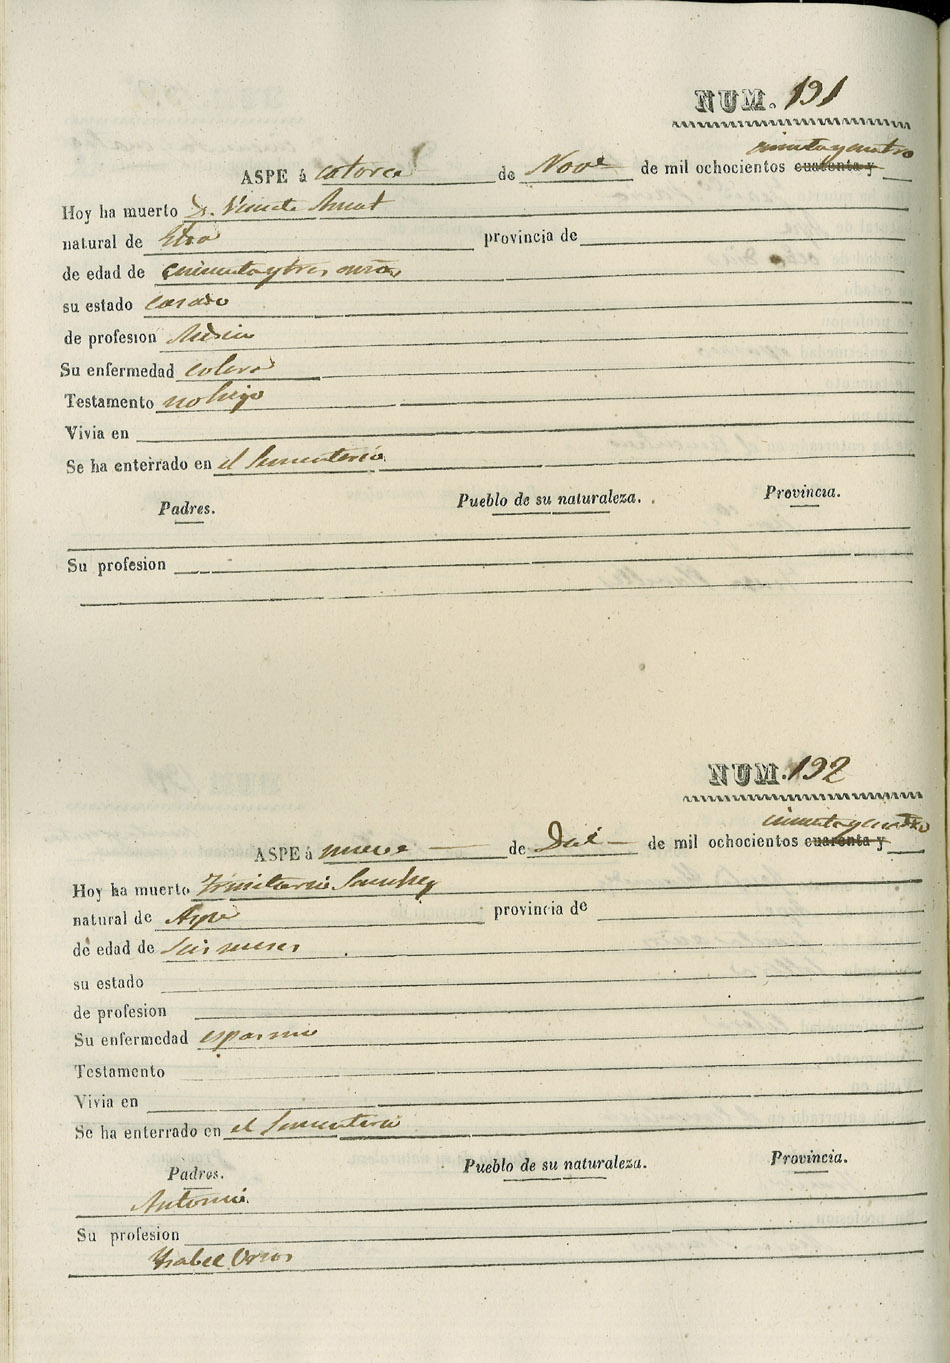 NUM. 191
cincuenta y cuatro
ASPE á catorce de Nov.e de mil ochocientos cuarenta y
Hoy ha muerto D. Vicente Amat
natural de provincia de
de edad de cincuenta y tres años
su estado casado
de profesion
Su enfermedad colera
Testamento no hizo
Vivia en
Se ha enterrado en el Sementerio
Padres. Pueblo de su naturaleza. Provincia.
Su profesion
NUM. 192
cincuenta y cuatro
ASPE á nueve de de mil ochocientos cuarenta y
Hoy ha muerto Trinitario Sanchez
natural de Aspe provincia de
de edad de seis meses
su estado
de profesion
Su enfermedad espasmo
Testamento
Vivia en
Se ha enterrado en el Sementerio
Padres. Pueblo de su naturaleza. Provincia.
Antonio
Su profesion
Ysabel